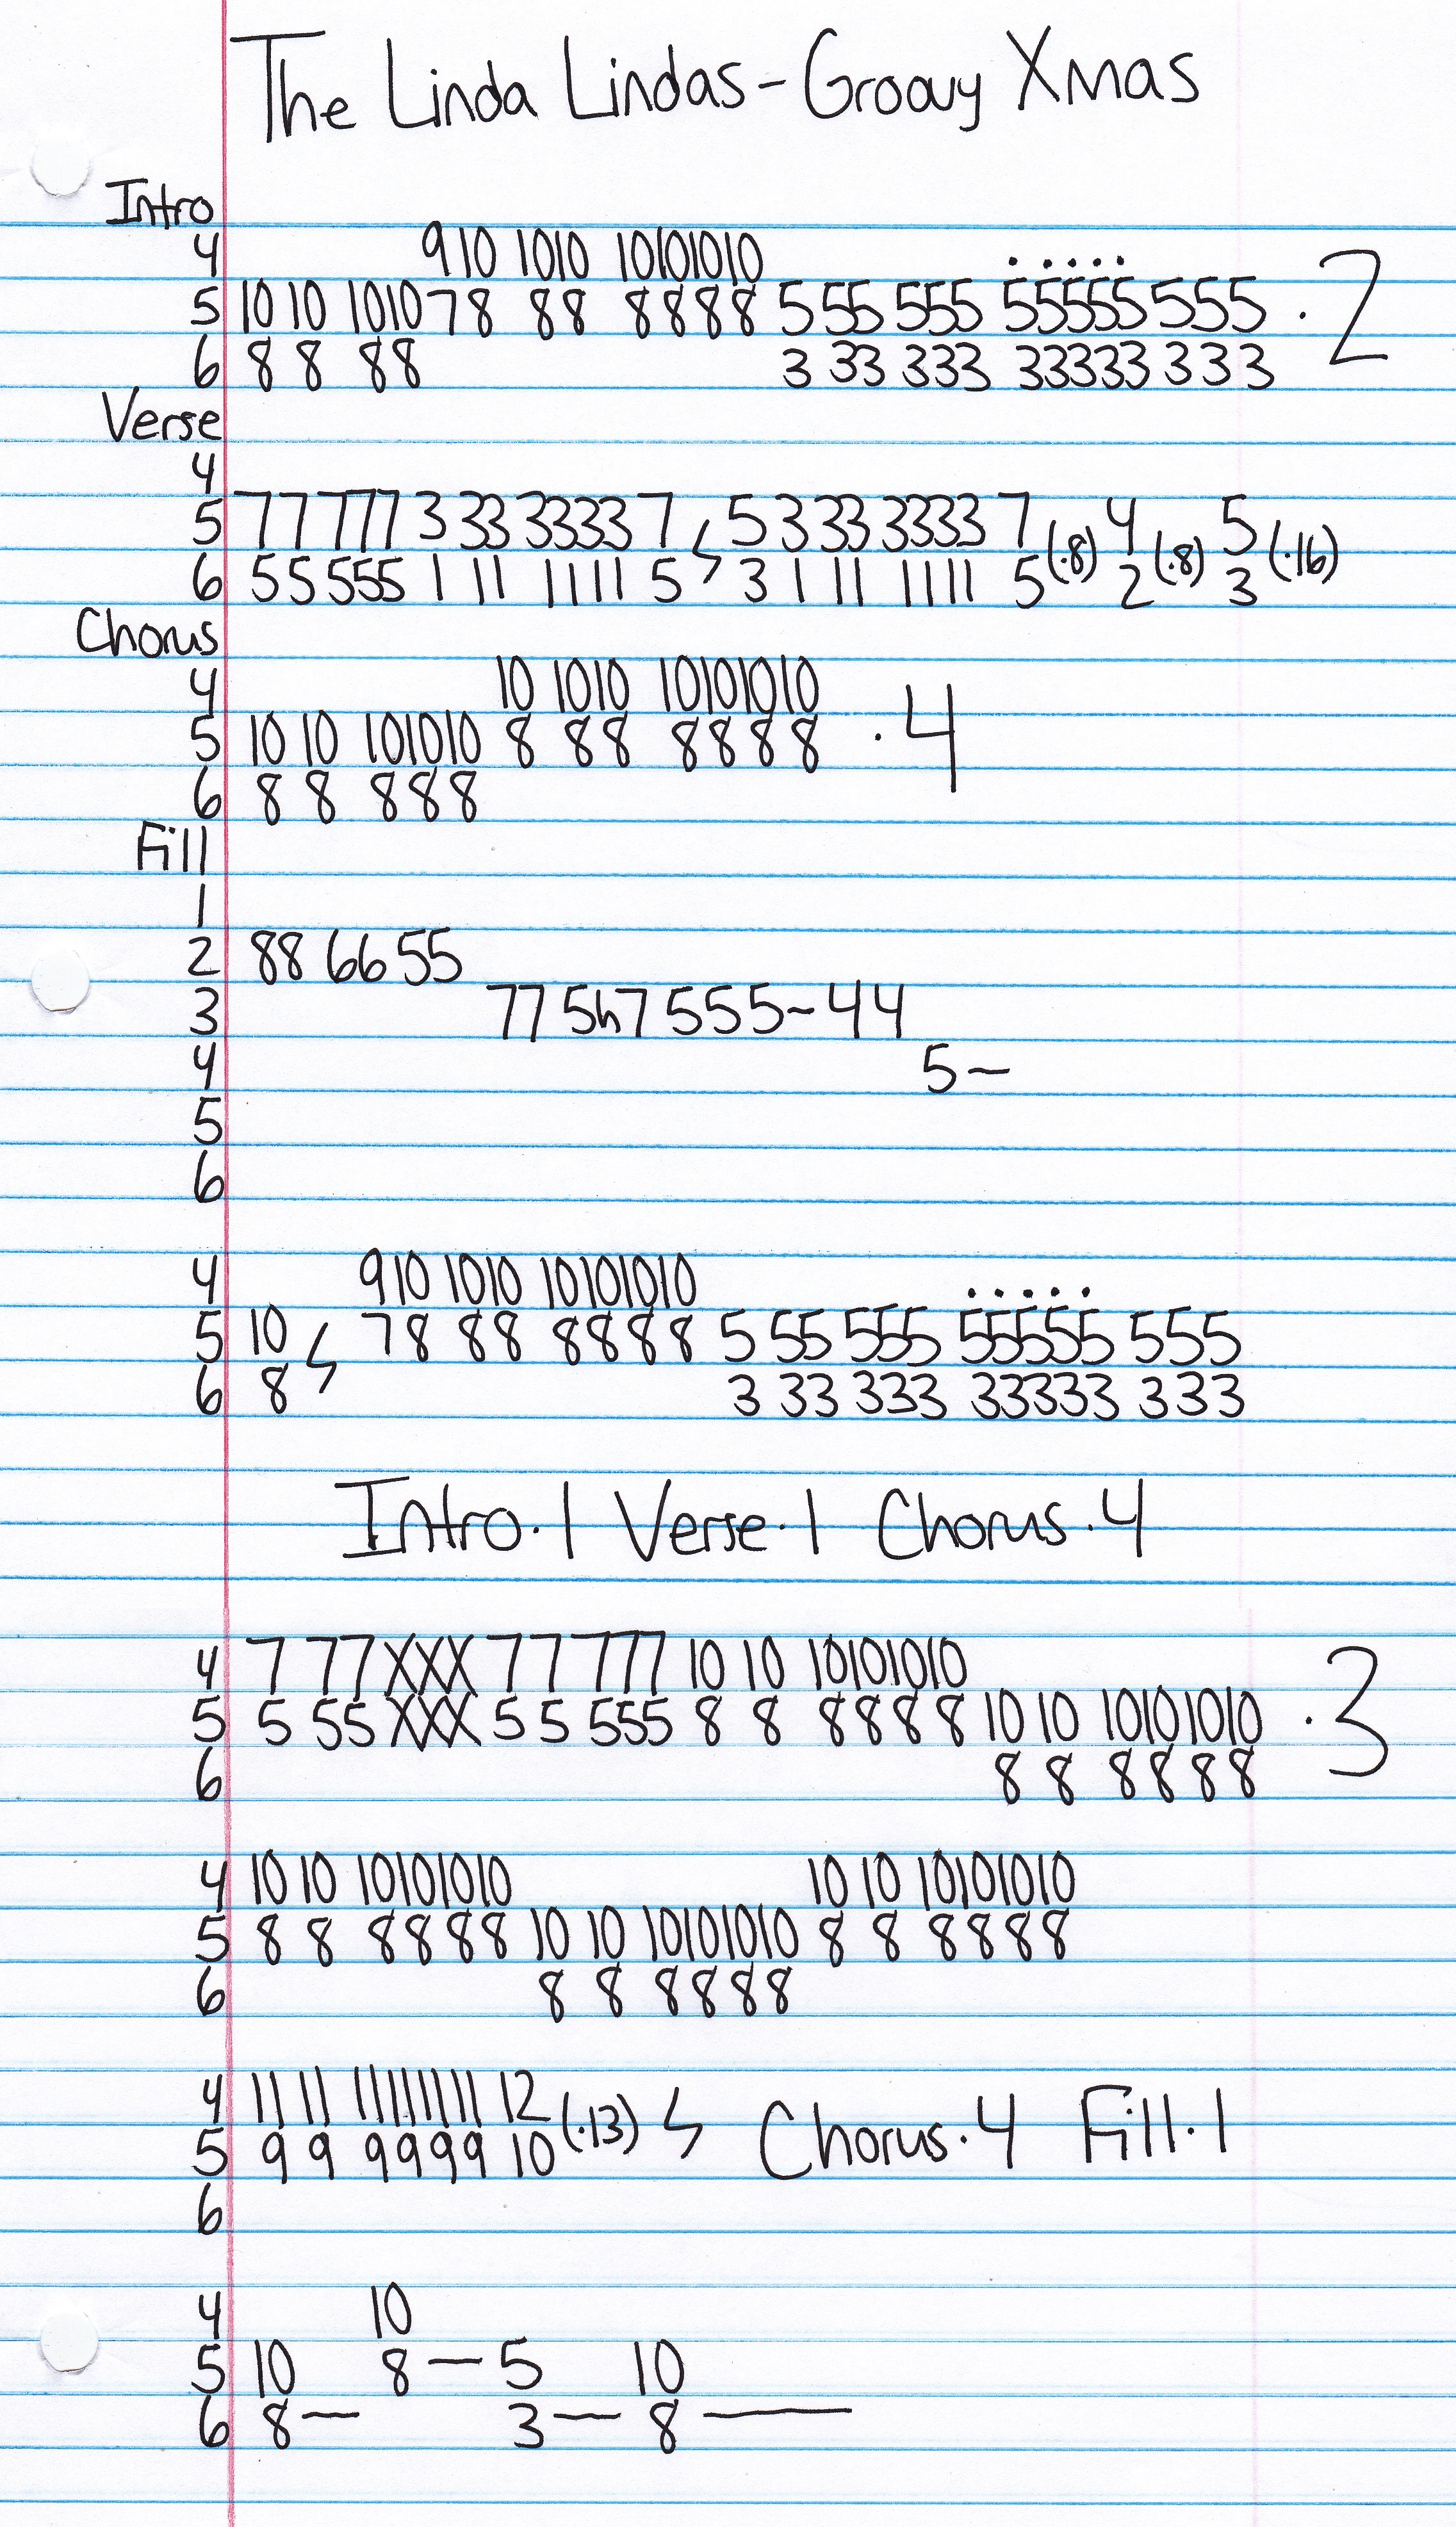 The Linda Lindas - Groovy Xmas
Intro
4 9 10 10 10 10 10 10 10 . . . . .
5 10 10 10 10 7 8 8 8 8 8 8 8 5 55 555 55555 555 · 2
6 8 8 8 8 3 33 333 33333 3 3 3
Verse
4
5 7 7 777 3 33 3333 7 𝄽 5 3 33 3333 7 (·8) 4 (·8) 5 (·16)
6 5 5 555 1 11 1111 5 3 1 11 1111 5 2 3
Chorus
4 10 10 10 10 10 10 10
5 10 10 10 10 10 8 8 8 8 8 8 8 · 4
6 8 8 8 8 8
Fill
1
2 88 66 55
3 77 5h7 5 5 5~ 4 4
4 5~
5
6
4 9 10 10 10 10 10 10 10 . . . . .
5 10 𝄽 7 8 8 8 8 8 8 8 5 55 555 55555 555
6 8 3 33 333 33333 3 3 3
Intro·1 Verse·1 Chorus·4
4 7 77 XXX 7 7 777 10 10 10 10 10 10
5 5 55 XXX 5 5 555 8 8 8 8 8 8 10 10 10 10 10 10 · 3
6 8 8 8 8 8 8
4 10 10 10 10 10 10 10 10 10 10 10 10
5 8 8 8 8 8 8 10 10 10 10 10 10 8 8 8 8 8 8
6 8 8 8 8 8 8
4 11 11 11 11 11 11 12
5 9 9 9 9 9 9 10 (·13) 𝄽 Chorus·4 Fill·1
6
4 10
5 10 8 — 5 10
6 8 — 3 — 8 —